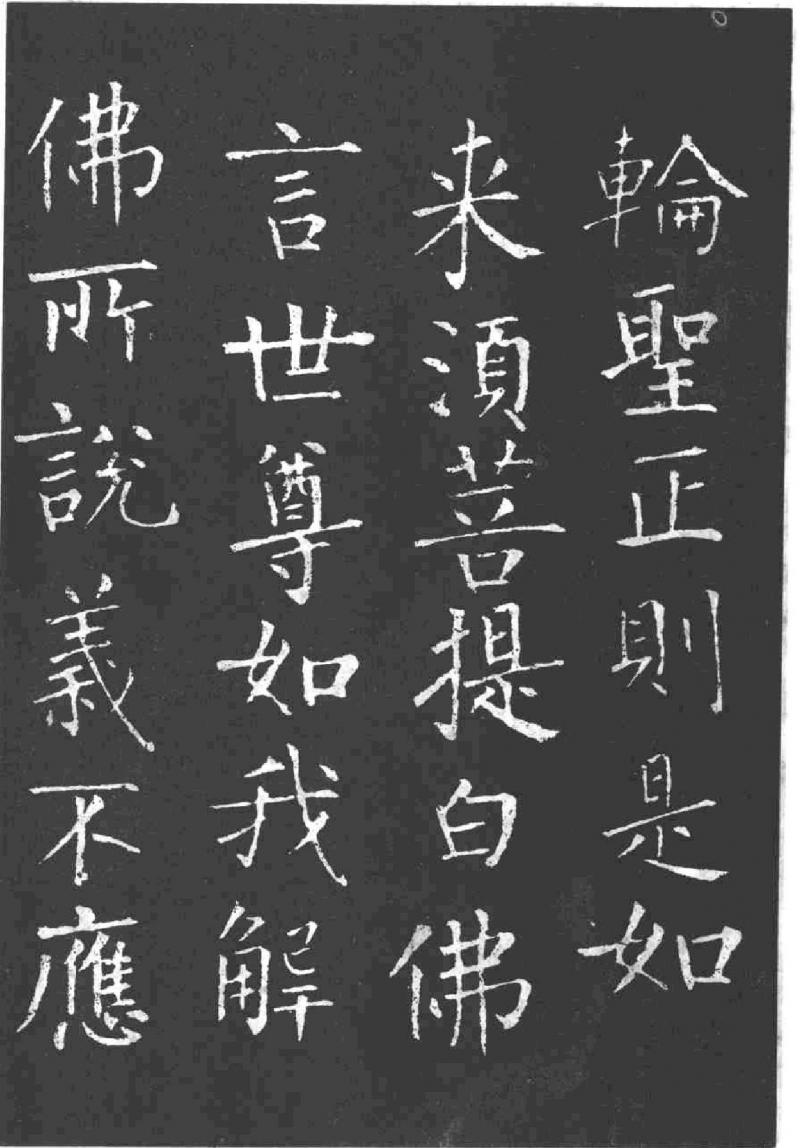 輪聖正則是如
来湏菩提白佛
言世尊如我解
佛所說義不應